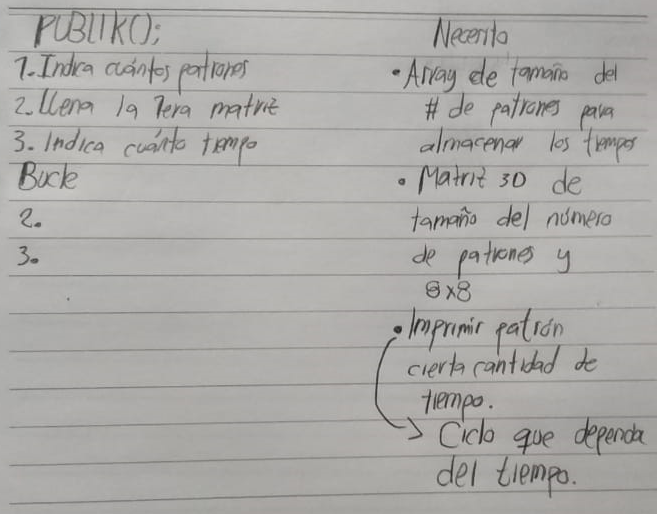 PUBLIK();
1. Indica cuántos patrones
2. Llena la 1era matriz
3. Indica cuánto tiempo
Bucle
2.
3.
Necesito
• Array de tamaño del
# de patrones para
almacenar los tiempos
• Matriz 3D de
tamaño del número
de patrones y
8x8
• Imprimir patrón
cierta cantidad de
tiempo.
→ Ciclo que dependa
del tiempo.